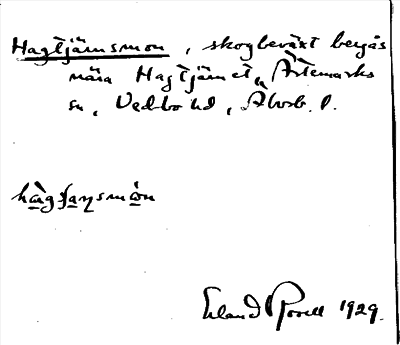 Hagtjärnsmon, skogbeväxt bergås
nära Hagtjärnet, Ärtemarks
sn, Vedbo hd, Älvsb. l.
hàgʃaɳsmòn
Erland Rosell 1929.